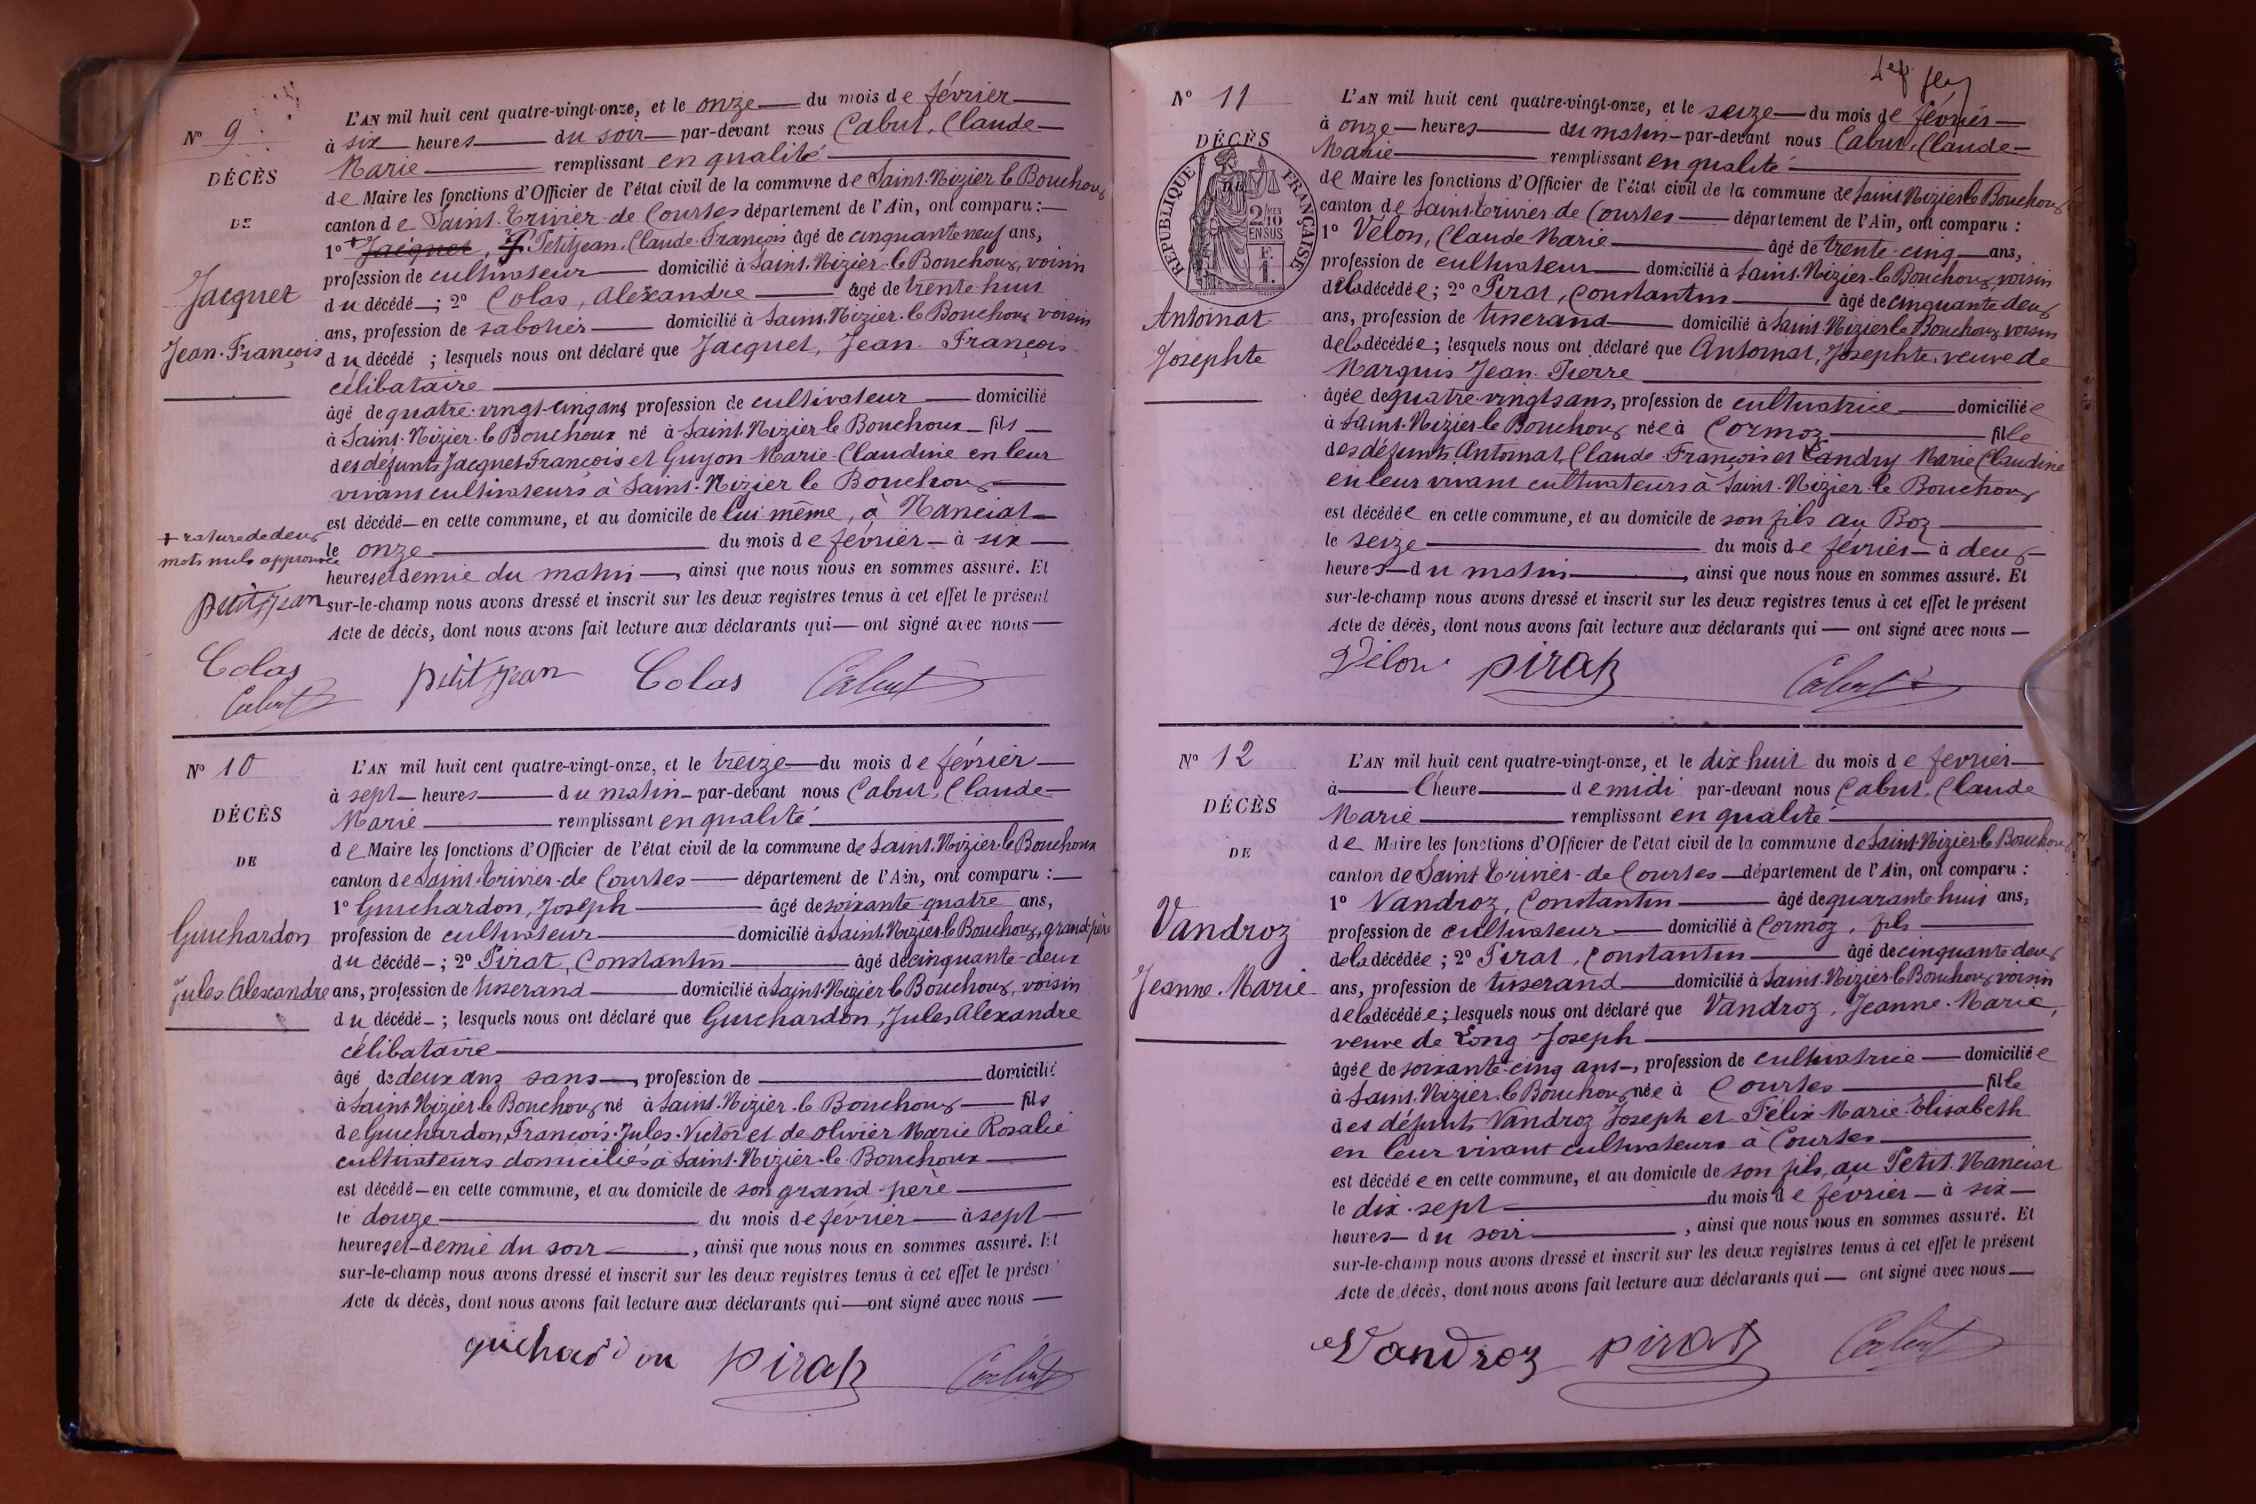 N° 9
DÉCÈS
DE
Jacquet
Jean-François
+ rature de deux
mots nuls approuvée
petitjean
Colas
Cabut
L'AN mil huit cent quatre-vingt-onze, et le onze du mois de février
à six heures du soir par-devant nous Cabut, Claude
Marie remplissant en qualité
de Maire les fonctions d'Officier de l'état civil de la commune de Saint-Nizier-le Bouchoux
canton de Saint-Trivier-de Courtes département de l'Ain, ont comparu :
1° + Jacquet, Petitjean, Claude-François âgé de cinquante neuf ans,
profession de cultivateur domicilié à Saint-Nizier-le Bouchoux, voisin
du décédé ; 2° Colas, Alexandre âgé de trente-huit
ans, profession de sabotier domicilié à Saint-Nizier-le Bouchoux voisin
du décédé ; lesquels nous ont déclaré que Jacquet, Jean-François
célibataire
âgé de quatre-vingt-cinq ans profession de cultivateur domicilié
à Saint-Nizier-le Bouchoux né à Saint-Nizier le Bouchoux fils
des défunts Jacquet François et Guyon Marie-Claudine en leur
vivant cultivateurs à Saint-Nizier le Bouchoux
est décédé en cette commune, et au domicile de lui même, à Nanciat
le onze du mois de février à six
heures et demie du matin, ainsi que nous nous en sommes assuré. Et
sur-le-champ nous avons dressé et inscrit sur les deux registres tenus à cet effet le présent
Acte de décès, dont nous avons fait lecture aux déclarants qui ont signé avec nous
petitjean Colas Cabut
N° 10
DÉCÈS
DE
Guichardon
Jules Alexandre
L'AN mil huit cent quatre-vingt-onze, et le treize du mois de février
à sept heures du matin par-devant nous Cabut, Claude
Marie remplissant en qualité
de Maire les fonctions d'Officier de l'état civil de la commune de Saint-Nizier-le Bouchoux
canton de Saint-Trivier-de Courtes département de l'Ain, ont comparu :
1° Guichardon, Joseph âgé de soixante quatre ans,
profession de cultivateur domicilié à Saint-Nizier-le Bouchoux, grand-père
du décédé ; 2° Pirat, Constantin âgé de cinquante-deux
ans, profession de tisserand domicilié à Saint-Nizier le Bouchoux, voisin
du décédé ; lesquels nous ont déclaré que Guichardon, Jules Alexandre
célibataire
âgé de deux ans sans, profession de domicilié
à Saint Nizier-le Bouchoux né à Saint-Nizier-le Bouchoux fils
de Guichardon, François-Jules-Victor et de Olivier Marie Rosalie
cultivateurs domiciliés à Saint-Nizier-le Bouchoux
est décédé en cette commune, et au domicile de son grand-père
le douze du mois de février à sept
heures et demie du soir, ainsi que nous nous en sommes assuré. Et
sur-le-champ nous avons dressé et inscrit sur les deux registres tenus à cet effet le présent
Acte de décès, dont nous avons fait lecture aux déclarants qui ont signé avec nous
guichardon pirat Cabut
N° 11
DÉCÈS
RÉPUBLIQUE FRANÇAISE
2/10 EN SUS
Antoinat
Josephte
L'AN mil huit cent quatre-vingt-onze, et le seize du mois de février
à onze heures du matin par-devant nous Cabut, Claude
Marie remplissant en qualité
de Maire les fonctions d'Officier de l'état civil de la commune de Saint Nizier le Bouchoux
canton de Saint-Trivier de Courtes département de l'Ain, ont comparu :
1° Velon, Claude Marie âgé de trente-cinq ans,
profession de cultivateur domicilié à Saint-Nizier-le Bouchoux, voisin
de la décédée ; 2° Pirat, Constantin âgé de cinquante deux
ans, profession de tisserand domicilié à Saint-Nizier le Bouchoux, voisin
de la décédée ; lesquels nous ont déclaré que Antoinat, Josephte, veuve de
Marquis Jean-Pierre
âgée de quatre-vingts ans, profession de cultivatrice domiciliée
à Saint-Nizier-le Bouchoux née à Cormoz fille
des défunts Antoinat, Claude-François et Landry Marie Claudine
en leur vivant cultivateurs à Saint-Nizier-le Bouchoux
est décédée en cette commune, et au domicile de son fils au Boz
le seize du mois de février à deux
heures du matin, ainsi que nous nous en sommes assuré. Et
sur-le-champ nous avons dressé et inscrit sur les deux registres tenus à cet effet le présent
Acte de décès, dont nous avons fait lecture aux déclarants qui ont signé avec nous
Vélon pirat Cabut
N° 12
DÉCÈS
DE
Vandroz
Jeanne-Marie
L'AN mil huit cent quatre-vingt-onze, et le dix huit du mois de février
à l'heure de midi par-devant nous Cabut, Claude
Marie remplissant en qualité
de Maire les fonctions d'Officier de l'état civil de la commune de Saint-Nizier-le Bouchoux
canton de Saint Trivier-de Courtes département de l'Ain, ont comparu :
1° Vandroz, Constantin âgé de quarante-huit ans,
profession de cultivateur domicilié à Cormoz, fils
de la décédée ; 2° Pirat, Constantin âgé de cinquante deux
ans, profession de tisserand domicilié à Saint-Nizier le Bouchoux, voisin
de la décédée ; lesquels nous ont déclaré que Vandroz, Jeanne-Marie,
veuve de Long Joseph
âgée de soixante-cinq ans, profession de cultivatrice domiciliée
à Saint-Nizier-le Bouchoux née à Courtes fille
des défunts Vandroz Joseph et Félix Marie-Elisabeth
en leur vivant cultivateurs à Courtes
est décédée en cette commune, et au domicile de son fils, au Petit-Nanciat
le dix-sept du mois de février à six
heures du soir, ainsi que nous nous en sommes assuré. Et
sur-le-champ nous avons dressé et inscrit sur les deux registres tenus à cet effet le présent
Acte de décès, dont nous avons fait lecture aux déclarants qui ont signé avec nous
Vandroz pirat Cabut